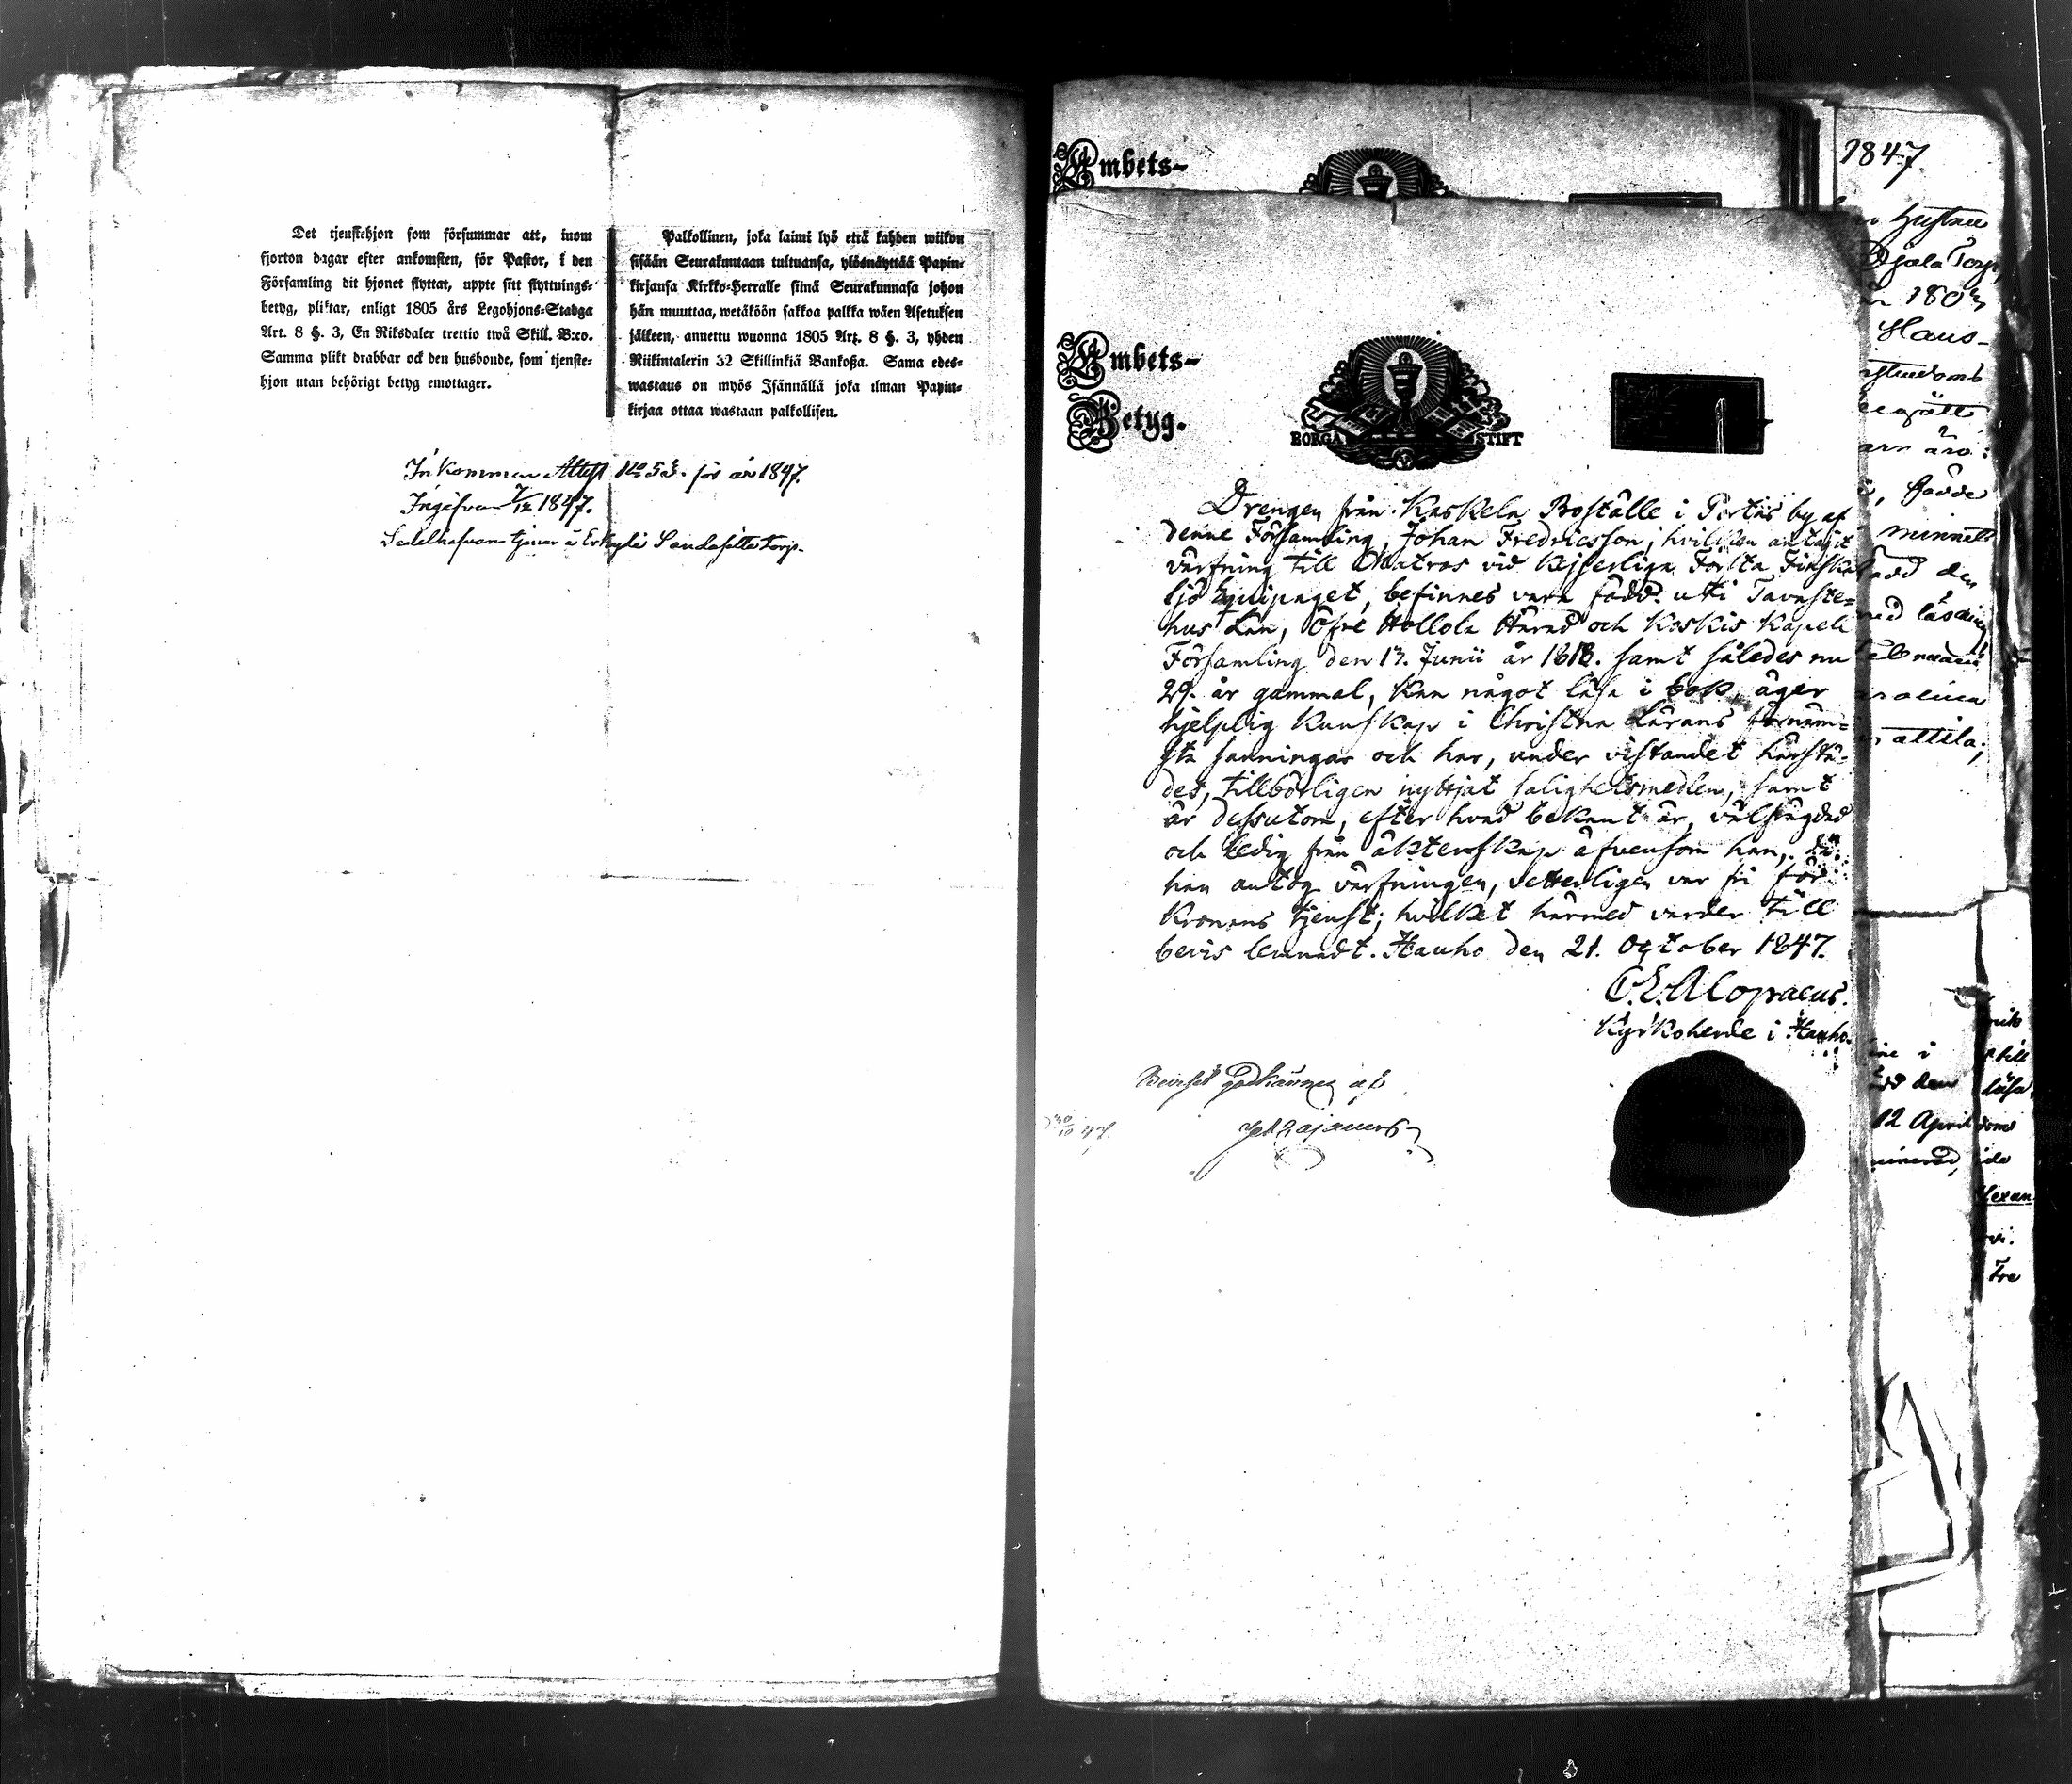 Det tjenstehjon som försummar att, inom
fjorton dagar efter ankomsten, för Pastor, i den
Församling dit hjonet flyttat, uppte sitt flyttnings-
betyg, pliktar, enligt 1805 års Legohjons-Stadga
Art. 8 §. 3, En Riksdaler trettio twå Skill. B:co.
Samma plikt drabbar ock den husbonde, som tjenste-
hjon utan behörigt betyg emottager.
Palkollinen, joka laimi lyö että kahden wiikon
sisään Seurakuntaan tultuansa, ylösnäyttää Papin-
kirjansa Kirkko-Herralle siinä Seurakunnasa johon
hän muuttaa, wetäköön sakkoa palkka wäen Asetuksen
jälkeen, annettu wuonna 1805 Art. 8 §. 3, yhden
Riikintalerin 32 Skillinkiä Bankoßa. Sama edes-
wastaus on myös Isännällä joka ilman Papin-
kirjaa ottaa wastaan palkollisen.
Inkommen Attest No 53. för år 1847.
Ingifvan 7/12 1847.
Sedelhafvan tjenar å Erkylä Torp.
Embets-
Embets-
Betyg.
BORGÅ STIFT
Drengen från Kaskela Boställe i Portas by af
denne Församling, Johan Fredricsson, hvilken antagit
värfning till Matros vid Kejserliga Första Finska
Sjö Equipaget, befinnes vara född uti Tavaste-
hus Län, Öfre Hollola Härad och Koskis Kapell
Församling den 13. Junii år 1818. samt således nu
29. år gammal, kan något läsa i bok, äger
hjelplig kunskap i Christna Lärans förnäm-
sta sanningar och har, under vistandet härstä-
des, tillbörligen nyttjat salighetsmedlen, samt
är dessutom, efter hvad bekant är, välfrägdad
och ledig från äktenskap äfvensom han, då
han antog värfningen, vetterligen var fri för
Kronans tjenst; hvilket härmed varder till
bevis lemnadt. Hauho den 21. October 1847.
C. E. Alopaeus.
Kyrkoherde i Hauho.
Beviset godkännes af
30/10 47.
1847
Gustav
Torp
180
Haus-
äro:
född
minnet
född den
med läsning
12 April
till
läsa